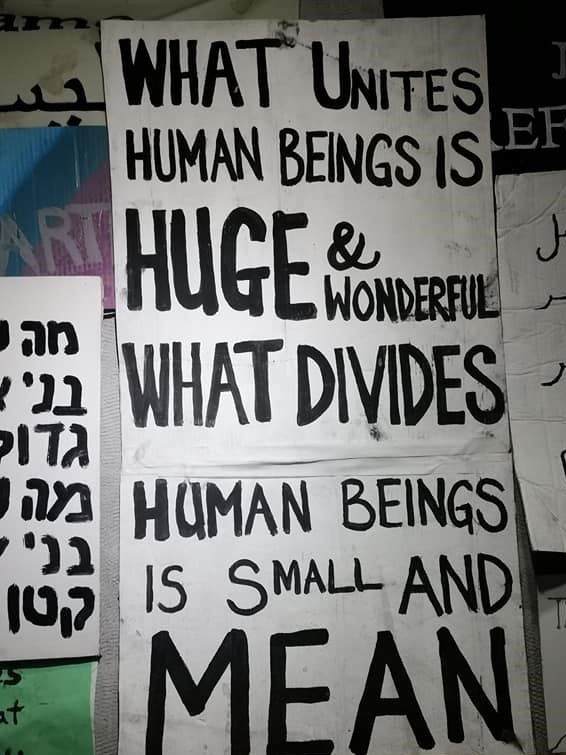 WHAT UNITES
HUMAN BEINGS IS
HUGE &
WONDERFUL
WHAT DIVIDES
HUMAN BEINGS
IS SMALL AND
MEAN
ART
מה
בני
מה
בני
קטן